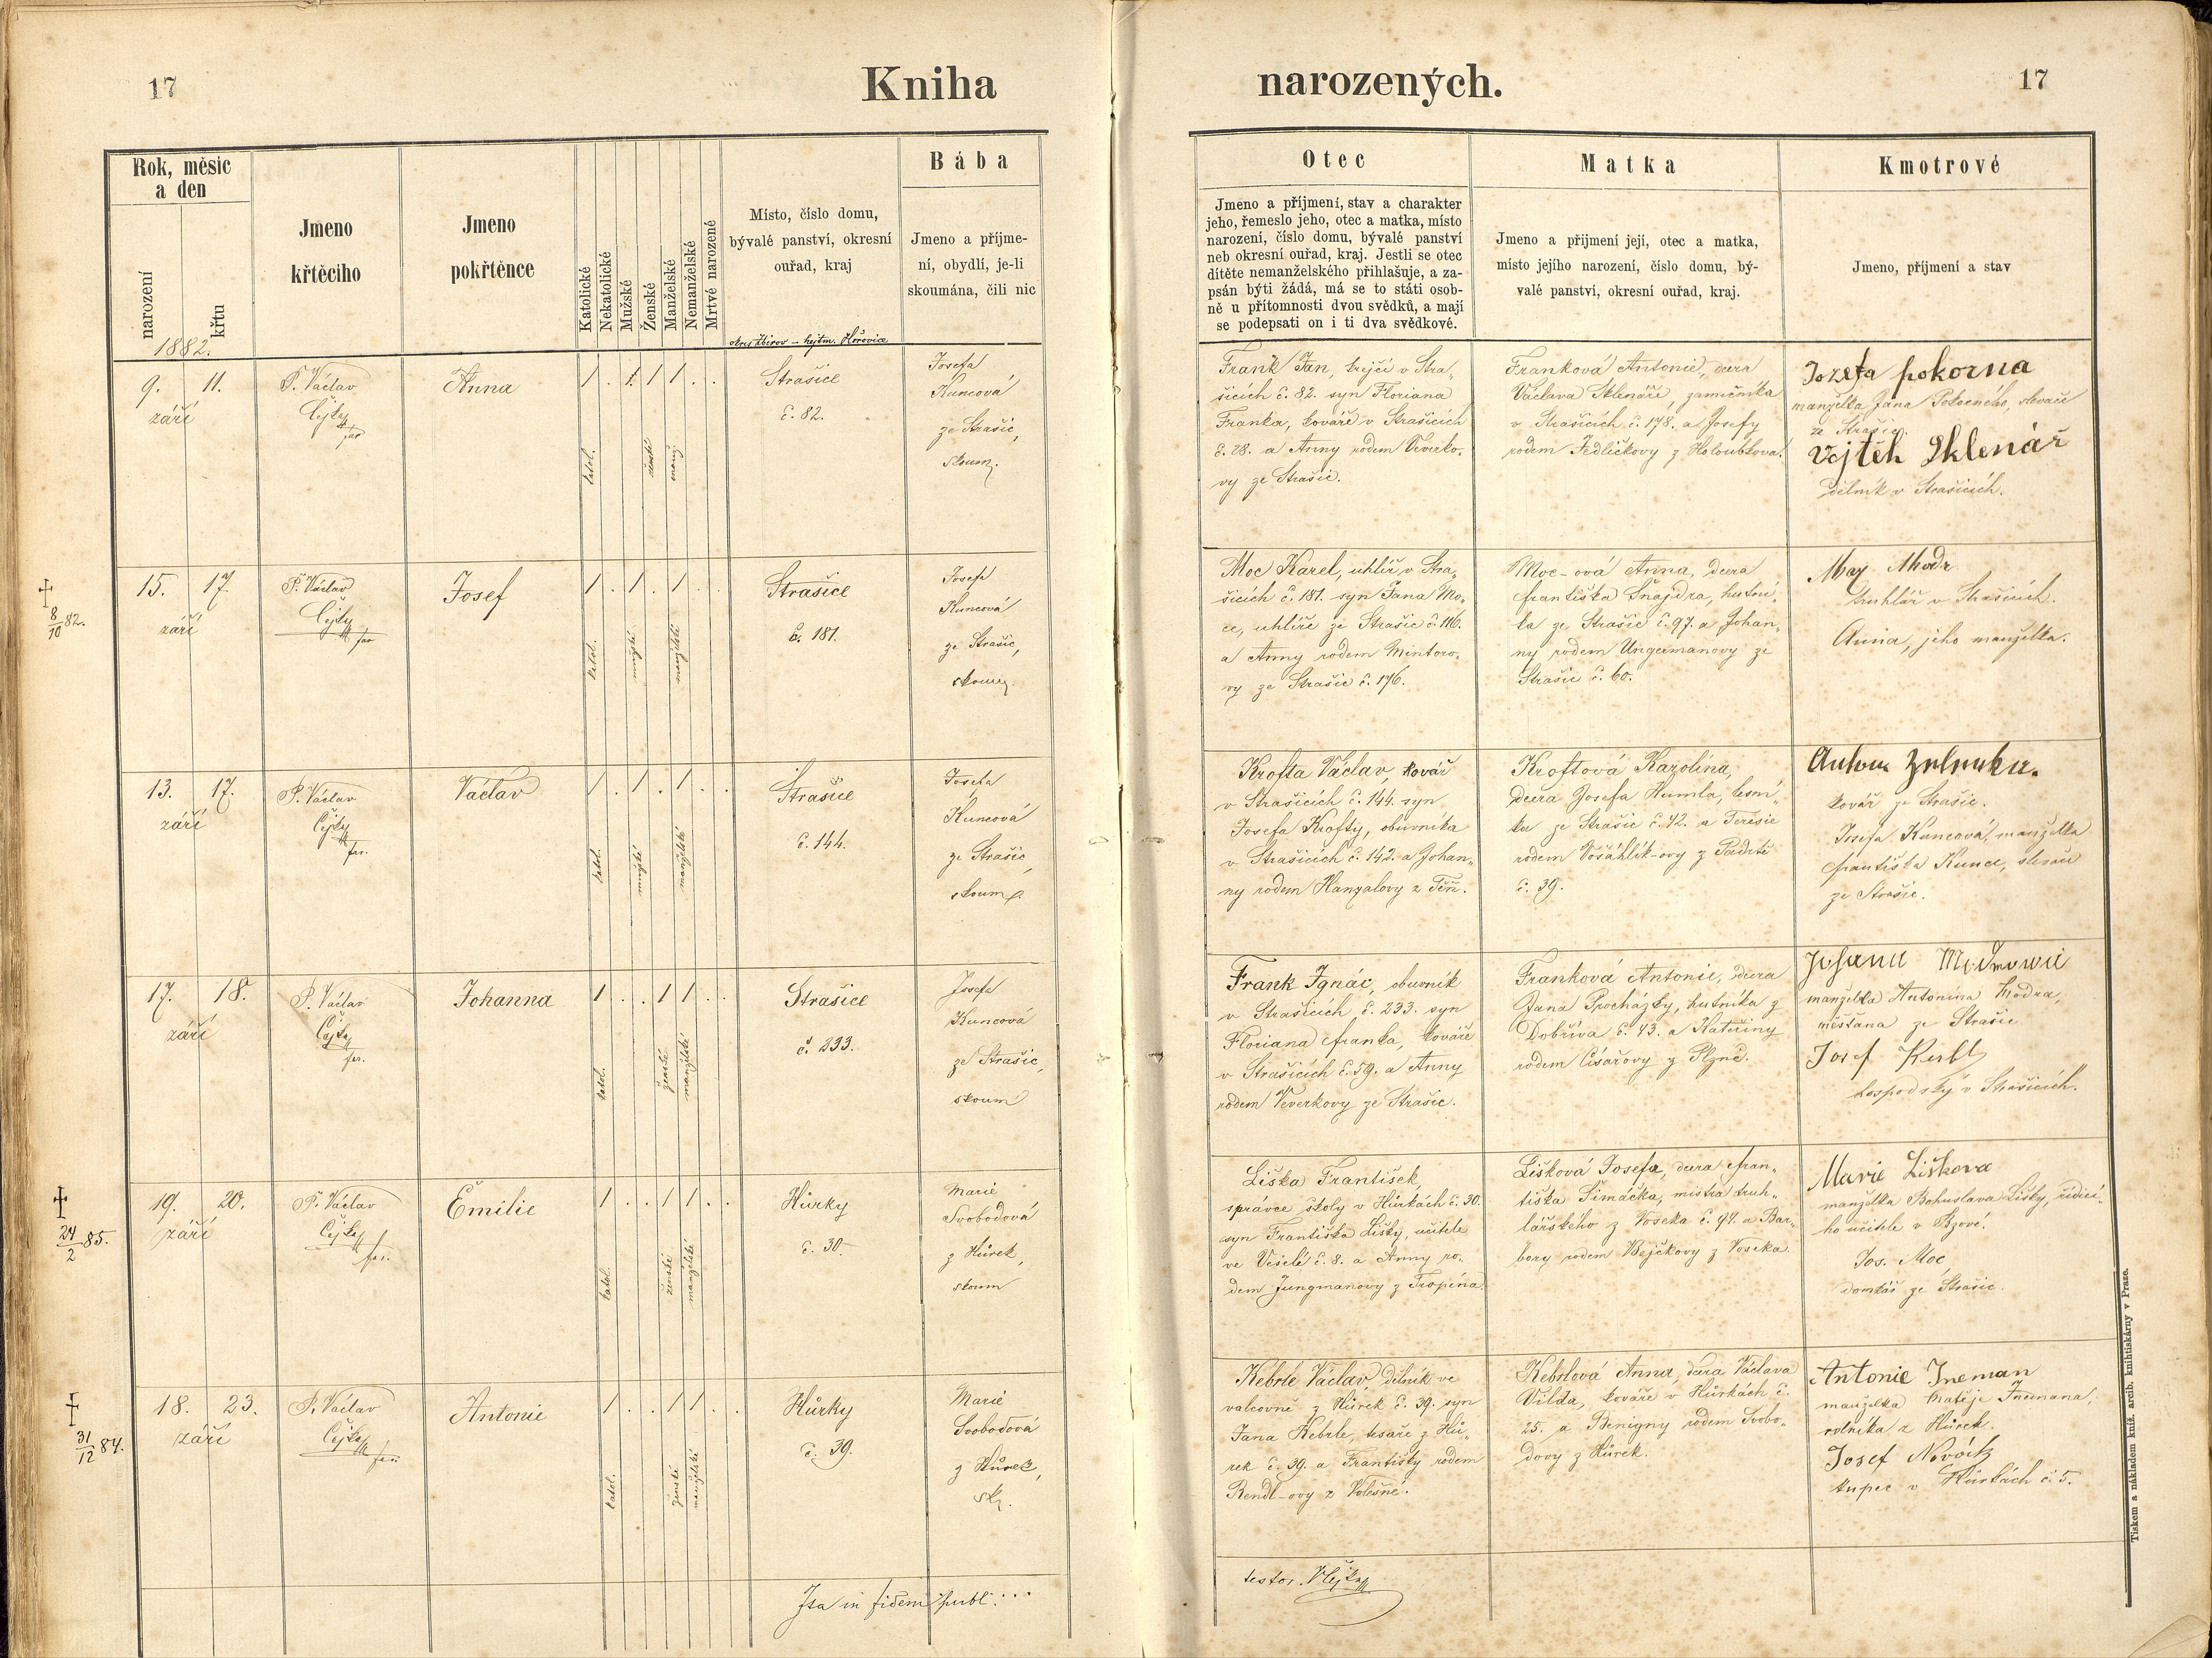 17
Kniha
narozených.
17
Rok, měsíc
a den
narození
křtu
1882.
Jmeno
křtěciho
Jmeno
pokřtěnce
Katolické
Nekatolické
Mužské
Ženské
Manželské
Nemanželské
Mrtvé narozené
Místo, číslo domu,
bývalé panství, okresní
ouřad, kraj
okres Zbirov - hejtm. Hořovice
Bába
Jmeno a příjme-
ní, obydlí, je-li
skoumána, čili nic
Otec
Jmeno a příjmení, stav a charakter
jeho, řemeslo jeho, otec a matka, místo
narození, číslo domu, bývalé panství
neb okresní ouřad, kraj. Jestli se otec
dítěte nemanželského přihlašuje, a za-
psán býti žádá, má se to státi osob-
ně u přítomnosti dvou svědků, a mají
se podepsati on i ti dva svědkové.
Matka
Jmeno a přijmení její, otec a matka,
místo jejího narození, číslo domu, bý-
valé panství, okresní ouřad, kraj.
Kmotrové
Jmeno, příjmení a stav
9. 11.
září
P. Václav
Cejka
far
Anna
katol.
ženské
manž.
Strašice
č. 82.
Josefa
Kuncová
ze Strašic,
skoum.
Frank Jan, krejčí v Stra-
šicích č. 82. syn Floriana
Franka, kováře v Strašicích
č. 28. a Anny rodem Veverko-
vy ze Strašic.
Franková Antonie, dcera
Václava Sklenáře, zámečníka
v Strašicích č. 178. a Josefy
rodem Jedličkovy z Holoubkova.
Jozefa pokorna
manželka Jana Pokorného, slevače
ze Strašic.
Vojtěh Sklenář
dělník v Strašicích.
8/10 82.
15. 17.
září
P. Václav
Cejka
far
Josef
katol.
mužské
manželské
Strašice
č. 181.
Josefa
Kuncová
ze Strašic,
skoum.
Moc Karel, uhlíř v Stra-
šicích č. 181. syn Jana Mo-
ce, uhlíře ze Strašic č. 116.
a Anny rodem Mintoro-
vy ze Strašic č. 176.
Moc-ová Anna, dcera
Františka Šnajdra, hutní-
ka ze Strašic č. 97. a Johan-
ny rodem Ungermanovy ze
Strašic č. 60.
truhlář v Strašicích.
Anna, jeho manželka.
13. 17.
září
P. Václav
Cejka
far.
Václav
katol.
mužské
manželské
Strašice
č. 144.
Josefa
Kuncová
ze Strašic,
skoum.
Krofta Václav, kovář
v Strašicích č. 144. syn
Josefa Krofty, obuvníka
v Strašicích č. 142. a Johan-
ny rodem Hanzalovy z Těň.
Kroftová Karolina,
dcera Josefa Humla, lesní-
ka ze Strašic č. 42. a Teresie
rodem Vošahlík-ovy z Padrtě
č. 39.
kovář ze Strašic.
Josefa Kuncová, manželka
Františka Kunce, slevače
ze Strašic.
17. 18.
září
P. Václav
Cejka
far.
Johanna
katol.
ženské
manželské
Strašice
č. 233.
Josefa
Kuncová
ze Strašic,
skoum
Frank Ignác, obuvník
v Strašicích č. 233. syn
Floriana Franka, kováře
v Strašicích č. 59. a Anny
rodem Veverkovy ze Strašic.
Franková Antonie, dcera
Jana Procházky, hutníka z
Dobříva č. 43. a Kateřiny
rodem Císařovy z Plzně.
manželka Antonína Modra,
měšťana ze Strašic
Josef
hospodský v Strašicích.
24/2 85.
19. 20.
září
P. Václav
Cejka
far.
Emilie
katol.
ženské
manželské
Hůrky
č. 30.
Marie
Svobodová
z Hůrek,
skoum
Liška František,
správce školy v Hůrkách č. 30.
syn Františka Lišky, učitele
ve Viselé č. 8. a Anny ro-
dem Jungmanovy z Tropína.
Lišková Josefa, dcera Fran-
tiška Šimáčka, mistra truh-
lářského z Voseka č. 94. a Bar-
bory rodem Bejčkovy z Voseka.
Marie Liškova
manželka Bohuslava Lišky, řídící-
ho učitele v Bzové.
Jos. Moc
domkář ze Strašic.
31/12 84.
18. 23.
září
P. Václav
Cejka
far.
Antonie
katol.
ženské
manželské
Hůrky
č. 39.
Marie
Svobodová
z Hůrek,
sk.
Kebrle Václav, dělník ve
valcovně z Hůrek č. 39. syn
Jana Kebrle, tesaře z Hů-
rek č. 39. a Františky rodem
Rendl-ovy z Volešné.
Kebrlová Anna, dcera Václava
Vilda, kováře v Hůrkách č.
25. a Benigny rodem Svobo-
dovy z Hůrek.
Antonie Ineman
manželka Matěje Inemana,
rolníka z Hůrek.
Josef Novák
kupec v Hůrkách č. 5.
Ita in fidem publ.
testor. VCejka
Tiskem a nákladem kníž. arcib. knihtiskárny v Praze.